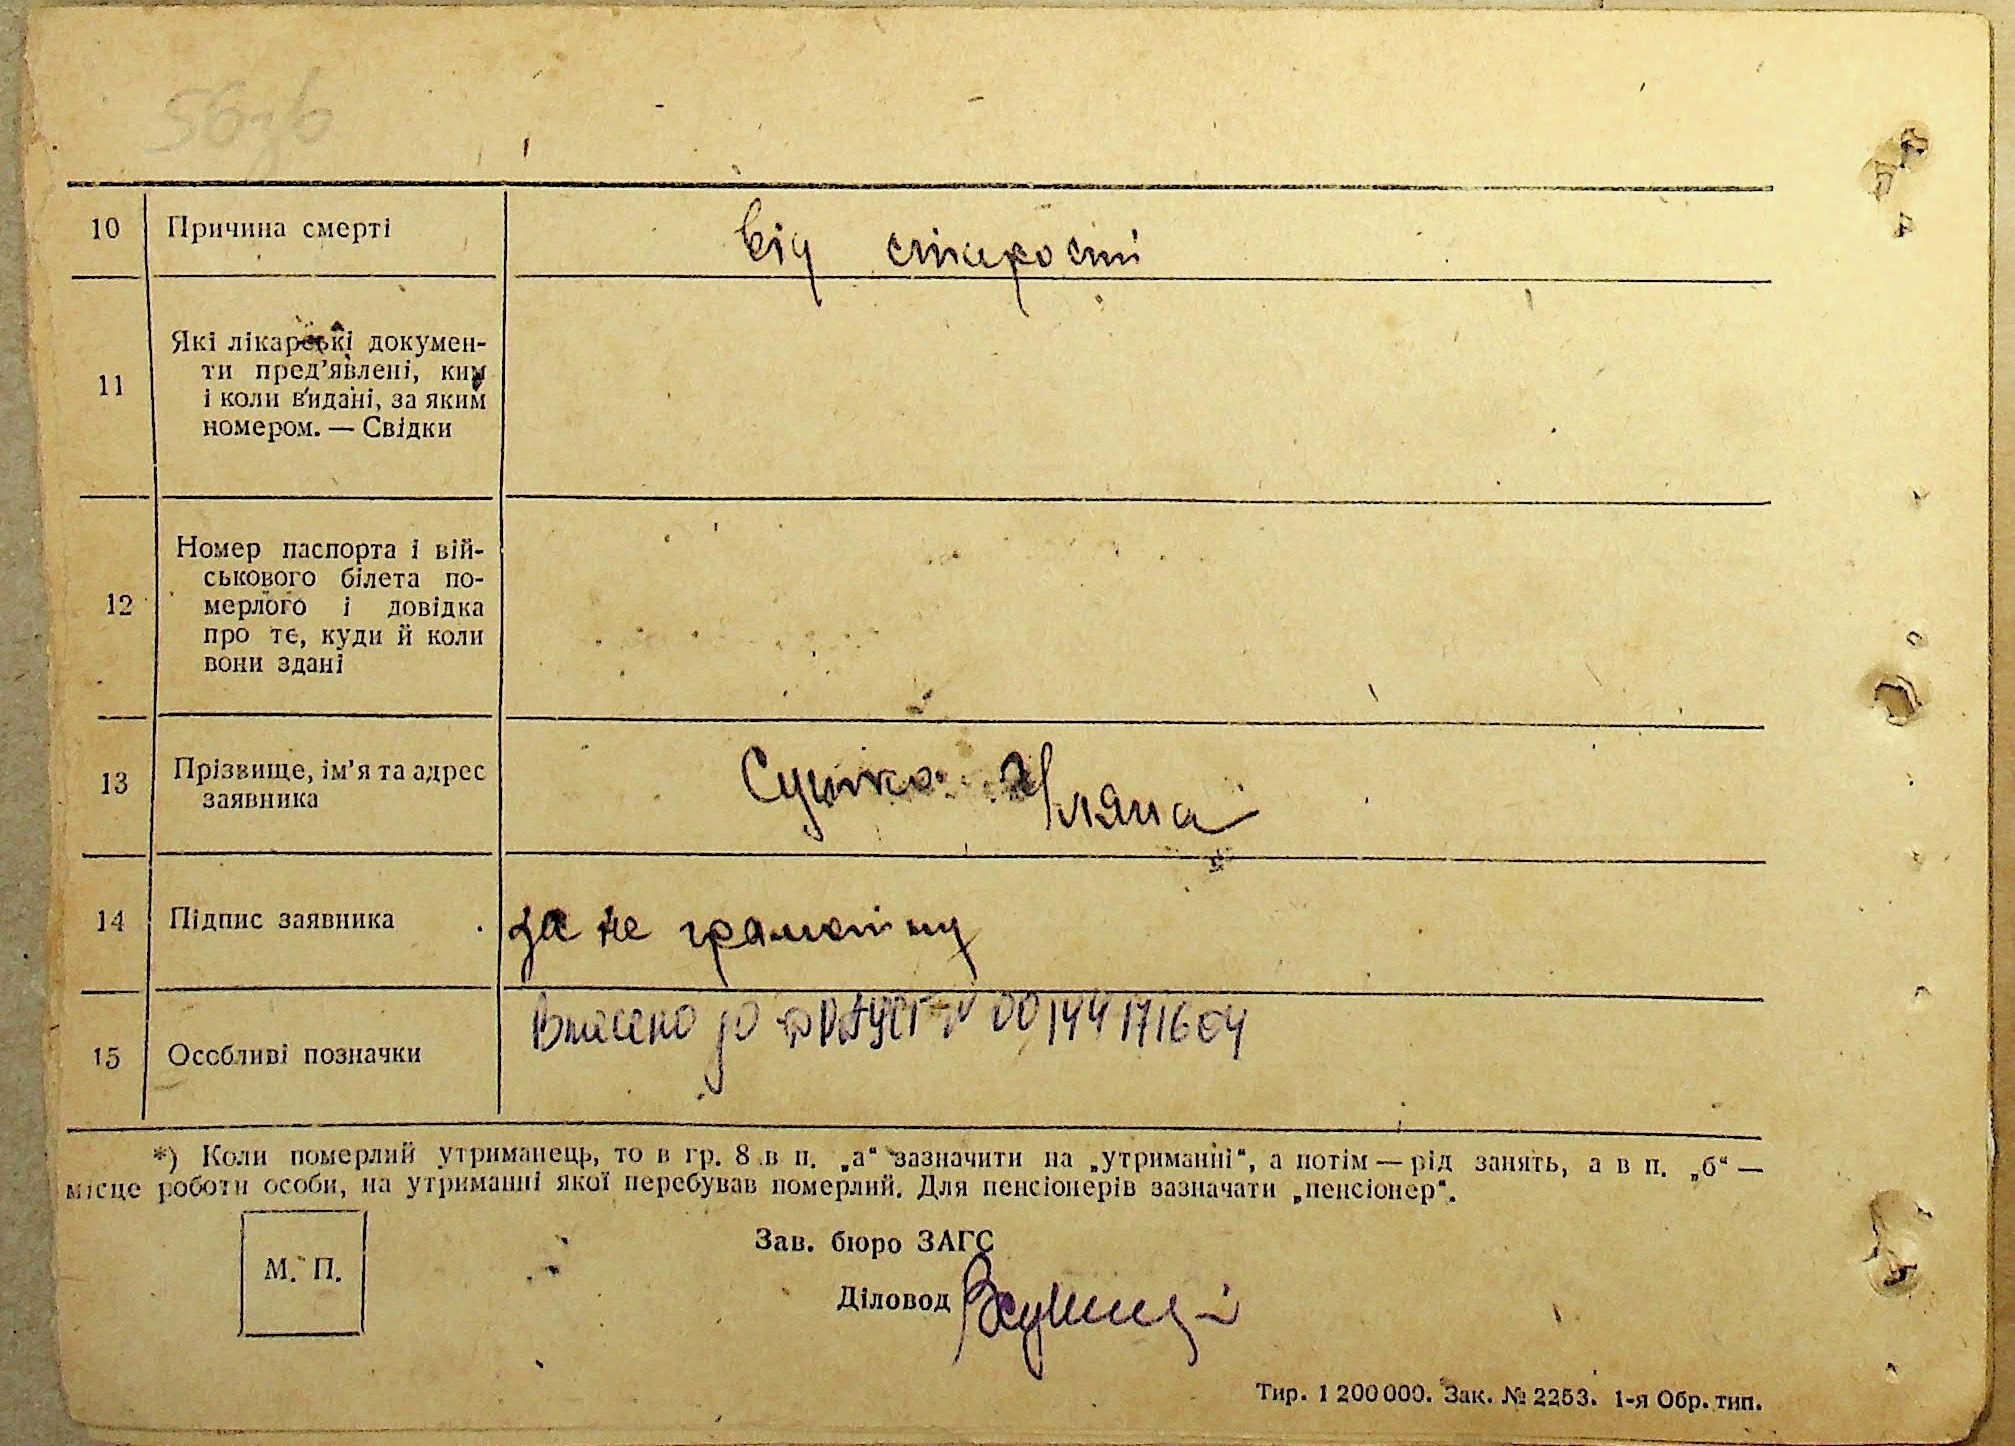 10 Причина смерті від старости
11 Які лікарські докумен-
ти пред’явлені, ким
і коли видані, за яким
номером. — Свідки
Номер паспорта і вій-
ськового білета по-
12 мерлого і довідка
про те, куди й коли
вони здані
13 Прізвище, ім’я та адрес
заявника
Уляна
14 Підпис заявника за не грамотну
Внесено до ДРАЦСГ № 00144171604
15 Особливі позначки
*) Коли померлий утриманець, то в гр. 8 в п. „а“ зазначити на „утриманні“, а потім — рід занять, а в п. „б“ —
місце роботи особи, на утриманні якої перебував померлий. Для пенсіонерів зазначати „пенсіонер“.
Зав. бюро ЗАГС
М. П.
Діловод
Тир. 1 200 000. Зак. № 2253. 1-я Обр. тип.